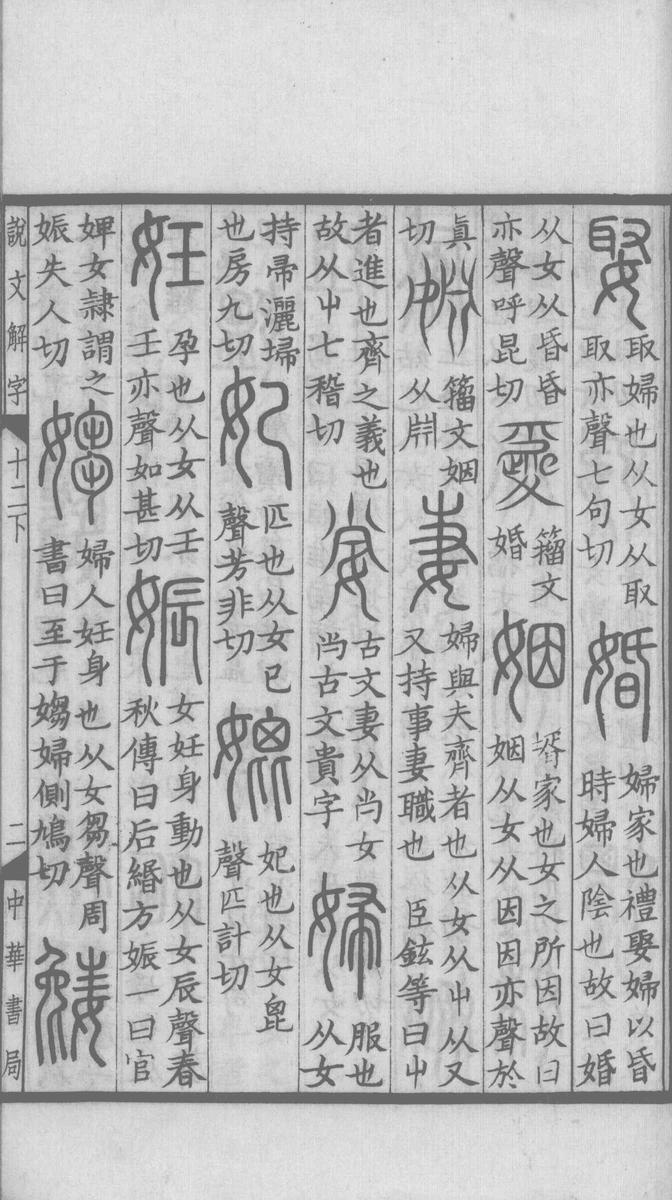 娶
取婦也从女从取
取亦聲七句切
婚
婦家也禮娶婦以昏
時婦人陰也故曰婚
从女从昏昏
亦聲呼昆切
籒文
婚
姻
壻家也女之所因故曰
姻从女从因因亦聲於
眞
切
籒文姻
从
妻
婦與夫齊者也从女从屮从又
又持事妻職也 臣鉉等曰屮
者進也齊之義也
故从屮七稽切
古文妻从𡴋女
𡴋古文貴字
婦
服也
从女
持帚灑埽
也房九切
妃
匹也从女己
聲芳非切
媲
妃也从女𣬉
聲匹計切
妊
孕也从女从壬
壬亦聲如甚切
娠
女妊身動也从女辰聲春
秋傳曰后緡方娠一曰官
婢女隷謂之
娠失人切
媰
婦人妊身也从女芻聲周
書曰至于媰婦側鳩切
說文解字
十二下
二
中華書局